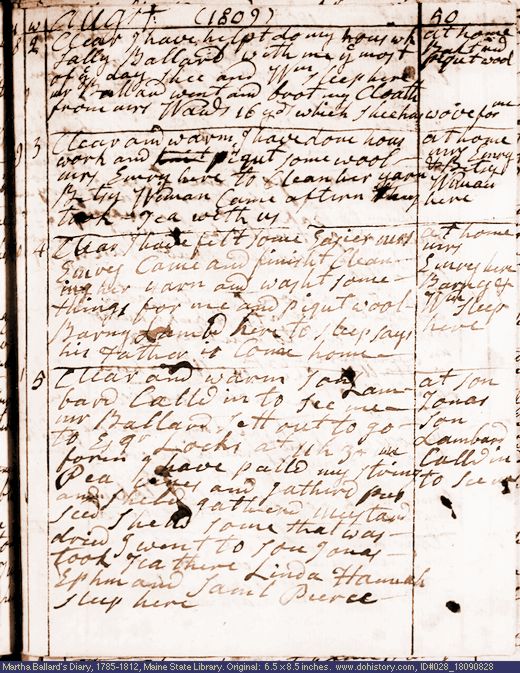 (1809)
50
2 Clear I have helpt do my hous wk
Sally Ballard with me ye most
of ye day. shee and Wm sleep here
mr Ballard went and brot my Cloath
from mrs Wards 16 yd which shee has wove for me
at home
3 Clear and warm. I have done hous
work and pickt some wool
mrs Emery here to Clean her yarn
Betsy Weman Came aftern they
took Tea with us
at home
mrs Emry
& Betsy
Weman
here
4 Clear I have felt some Easier mrs
Emrey Came and finisht Clean-
ing her yarn and washt some
things for me and pickt wool
Barny Lambd here to sleep says
his Father is Come home
at home
mrs
Emrey here
Barny &
Wm sleep
here
5 Clear and warm son Lam-
bard Calld in to see me
mr Ballard sett out to go
to Esqr Locks at 11h
I have pulld my
Pea vines and gathered
and gathered mustard
seed shelld some that was
dried I went to son Jonas
took Tea there Linda Hannah
Ephm and Saml Peirce
sleep here
at son
Jonas
son
Lambard
Calld in
to see us
Martha Ballard's Diary, 1785-1812, Maine State Library. Original: 6.5 x 8.5 inches. www.dohistory.com, ID#028_18090828